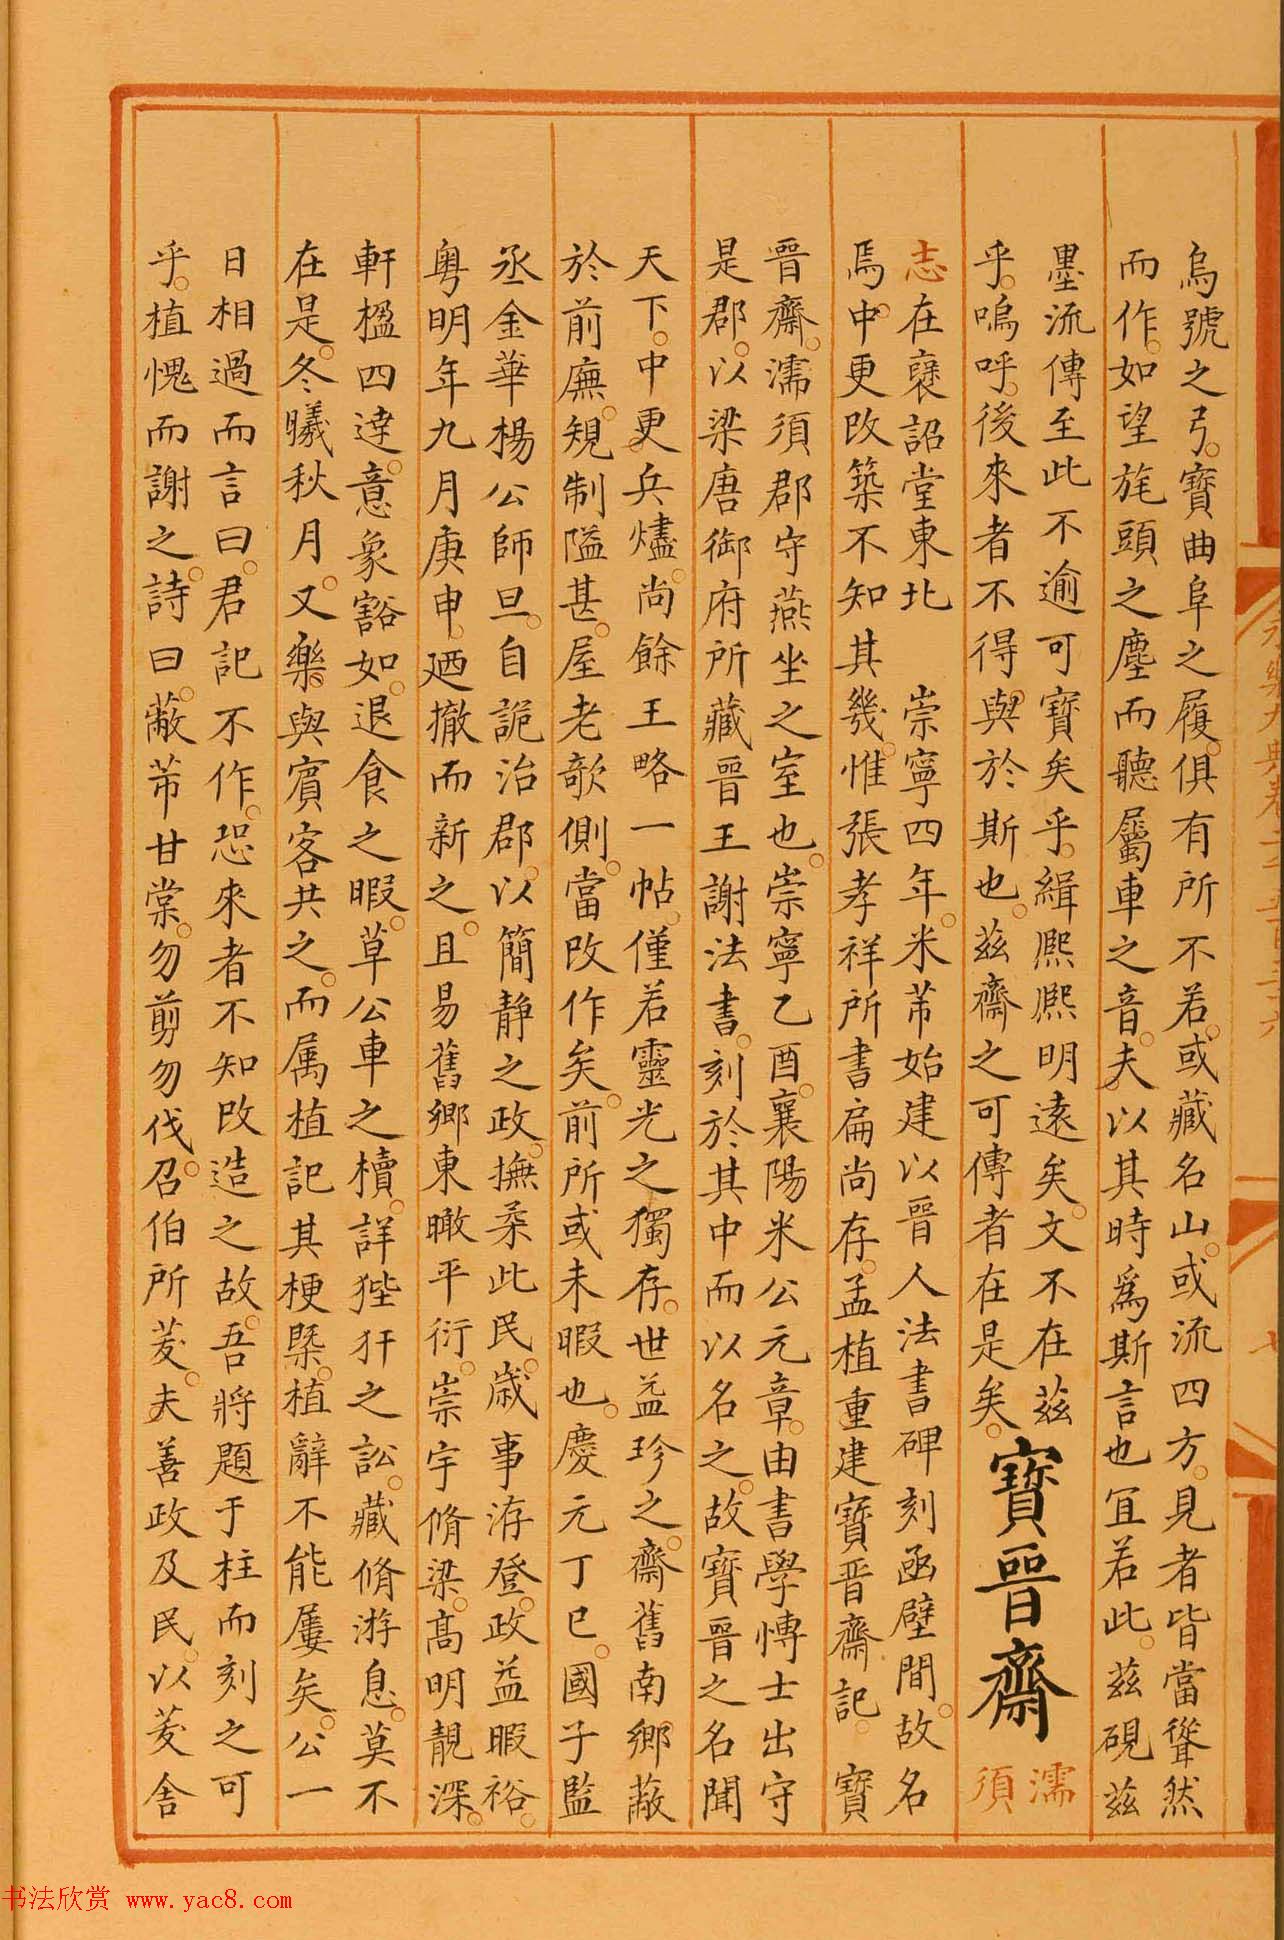 烏號之弓寶曲阜之履俱有所不若或藏名山或流四方見者皆當聳然
而作如望旄頭之塵而聽屬車之音夫以其時爲斯言也冝若此茲硯茲
墨流傳至此不逾可寶矣乎緝熈熈明遠矣文不在茲
乎嗚呼後來者不得與於斯也茲齋之可傳者在是矣
寶晉齋
濡
須
志在襃詔堂東北 崇寧四年米芾始建以晉人法書碑刻函壁間故名
焉中更改築不知其幾惟張孝祥所書扁尚存孟植重建寶晋齋記 寶
晉齋濡須郡守燕坐之室也崇寧乙酉襄陽米公元章由書學愽士出守
是郡以梁唐御府所藏晉王謝法書刻於其中而以名之故寶晉之名聞
天下中更兵燼尚餘王略一帖僅若靈光之獨存世益珍之齋舊南鄉蔽
於前廡規制隘甚屋老欹側當改作矣前所或未暇也慶元丁巳國子監
丞金華楊公師旦自詭治郡以簡靜之政撫柔此民歲事洊登政益暇裕
粤明年九月庚申廼撤而新之且易舊鄉東瞰平衍崇宇脩梁髙明靚深
軒楹四達意象豁如退食之暇草公車之櫝詳狴犴之訟藏脩游息莫不
在是冬曦秋月又樂與賓客共之而属植記其梗槩植辭不能屢矣公一
日相過而言曰君記不作恐來者不知改造之故吾將題于柱而刻之可
乎植愧而謝之詩曰蔽芾甘棠勿剪勿伐召伯所茇夫善政及民以茇舍
书法欣赏 www.yac8.com